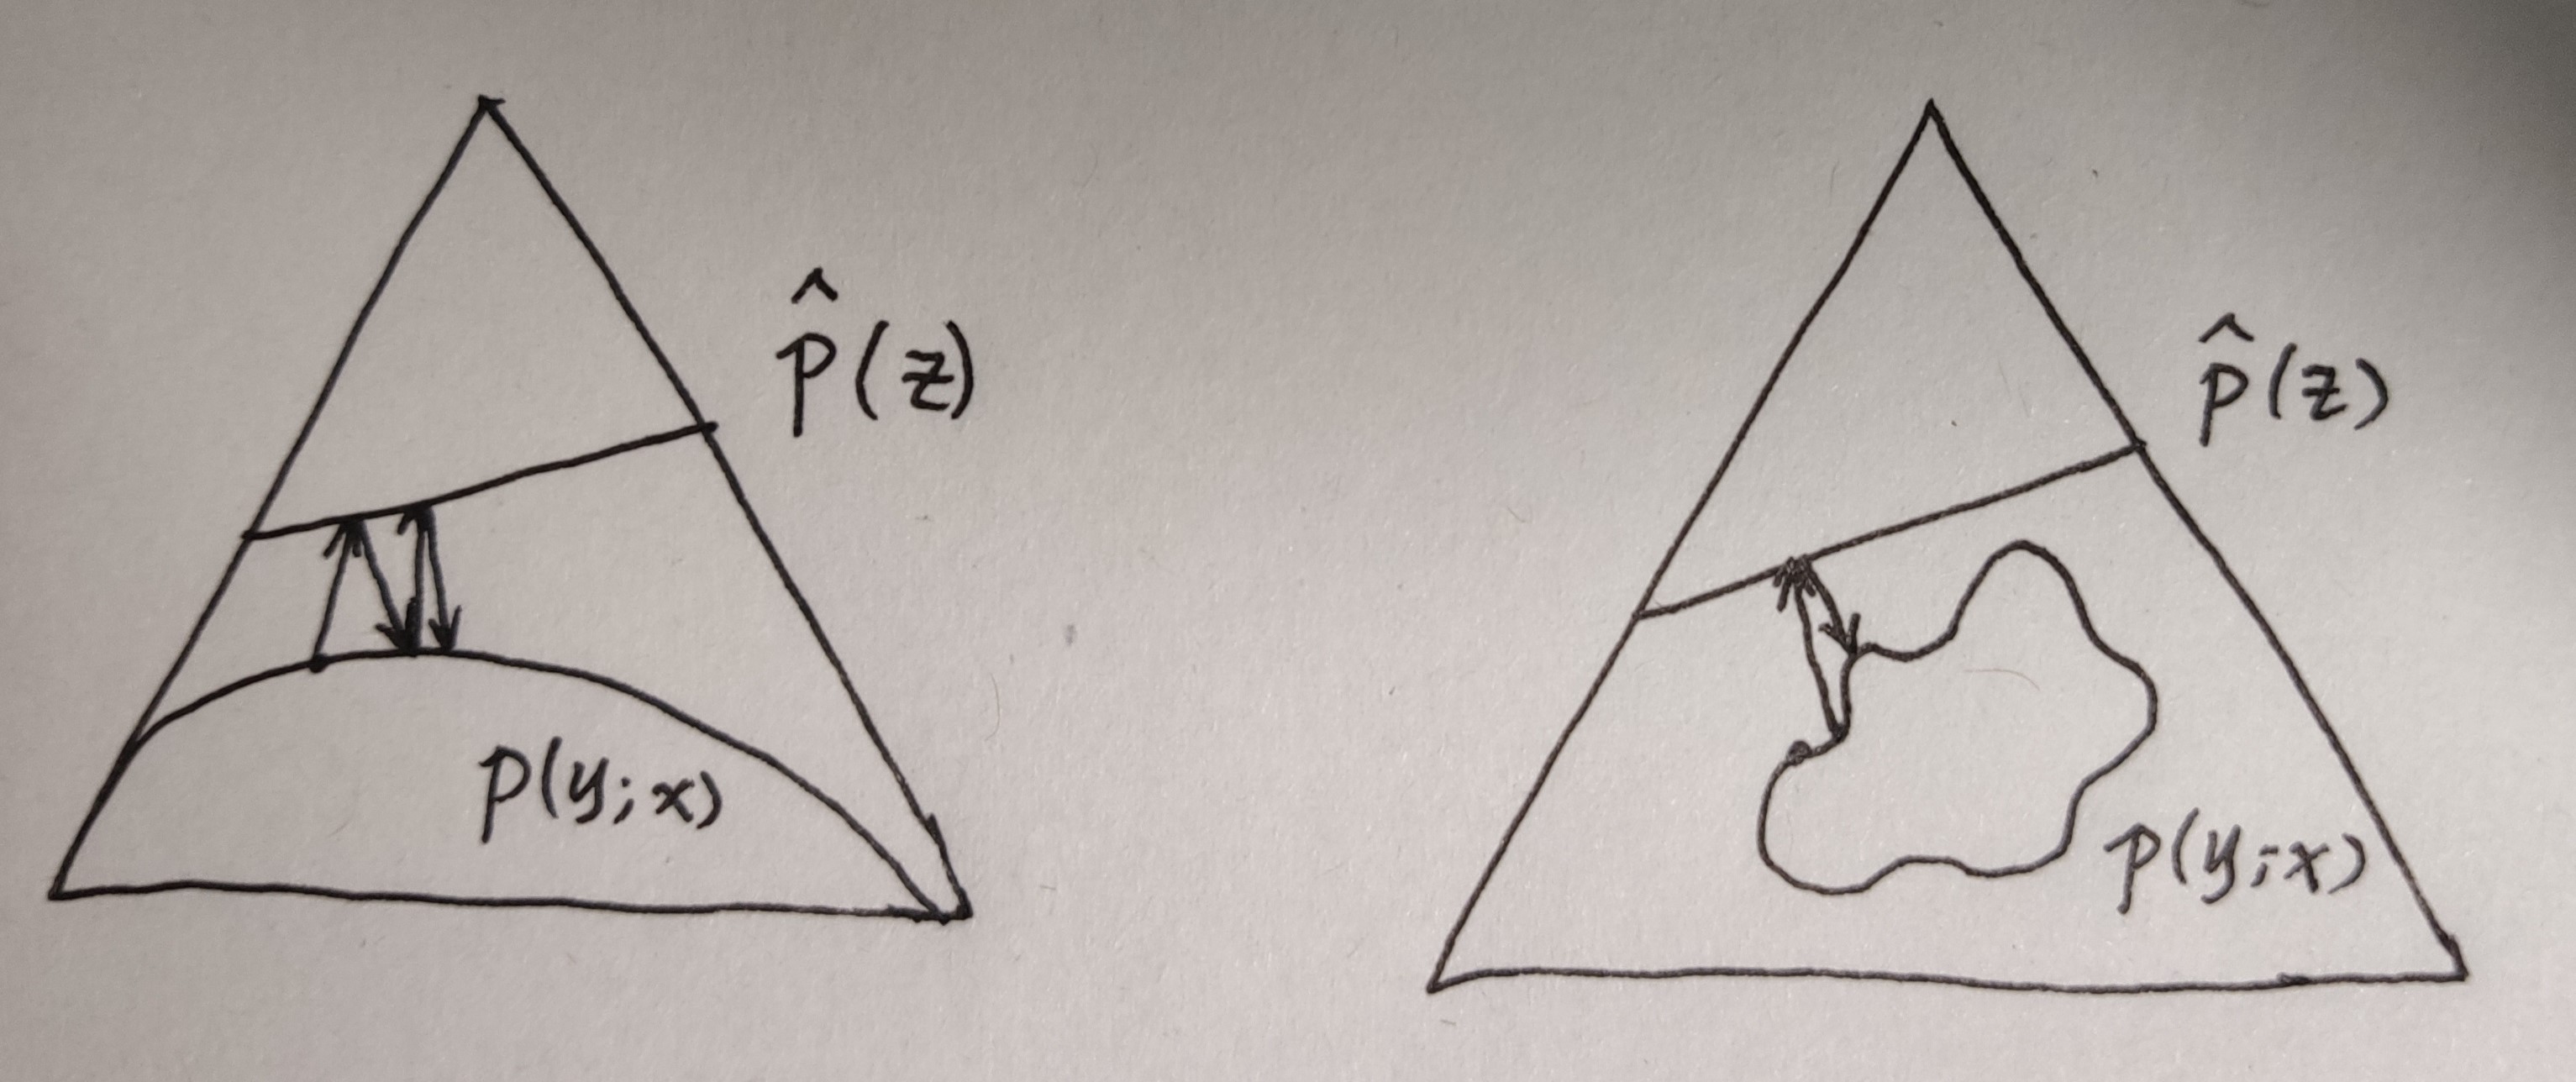 p̂(z)
p(y;x)
p̂(z)
p(y;x)